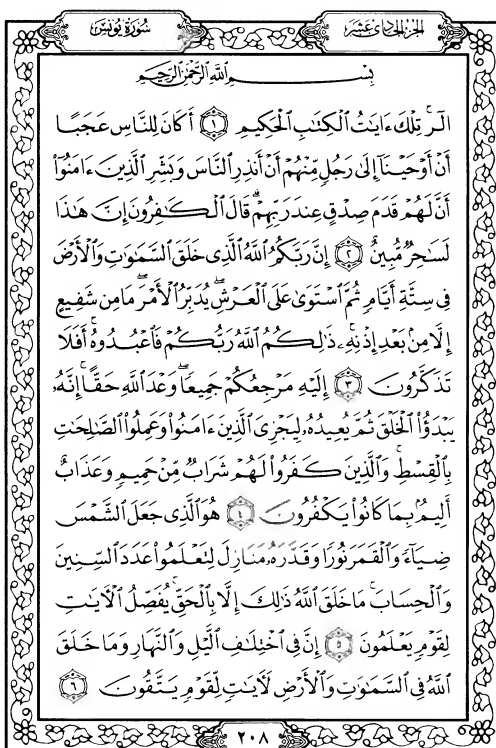 سُورَةُ يُونُسَ
الجُزْءُ الحَادِي عَشَرَ
بِسْمِ ٱللَّهِ ٱلرَّحْمَٰنِ ٱلرَّحِيمِ
الٓر ۚ تِلْكَ ءَايَٰتُ ٱلْكِتَٰبِ ٱلْحَكِيمِ ١ أَكَانَ لِلنَّاسِ عَجَبًا
أَنْ أَوْحَيْنَآ إِلَىٰ رَجُلٍ مِّنْهُمْ أَنْ أَنذِرِ ٱلنَّاسَ وَبَشِّرِ ٱلَّذِينَ ءَامَنُوٓا۟
أَنَّ لَهُمْ قَدَمَ صِدْقٍ عِندَ رَبِّهِمْ ۗ قَالَ ٱلْكَٰفِرُونَ إِنَّ هَٰذَا
لَسَٰحِرٌ مُّبِينٌ ٢ إِنَّ رَبَّكُمُ ٱللَّهُ ٱلَّذِى خَلَقَ ٱلسَّمَٰوَٰتِ وَٱلْأَرْضَ
فِى سِتَّةِ أَيَّامٍ ثُمَّ ٱسْتَوَىٰ عَلَى ٱلْعَرْشِ ۖ يُدَبِّرُ ٱلْأَمْرَ ۖ مَا مِن شَفِيعٍ
إِلَّا مِنۢ بَعْدِ إِذْنِهِۦ ۚ ذَٰلِكُمُ ٱللَّهُ رَبُّكُمْ فَٱعْبُدُوهُ ۚ أَفَلَا
تَذَكَّرُونَ ٣ إِلَيْهِ مَرْجِعُكُمْ جَمِيعًا ۖ وَعْدَ ٱللَّهِ حَقًّا ۚ إِنَّهُۥ
يَبْدَؤُا۟ ٱلْخَلْقَ ثُمَّ يُعِيدُهُۥ لِيَجْزِىَ ٱلَّذِينَ ءَامَنُوا۟ وَعَمِلُوا۟ ٱلصَّٰلِحَٰتِ
بِٱلْقِسْطِ ۚ وَٱلَّذِينَ كَفَرُوا۟ لَهُمْ شَرَابٌ مِّنْ حَمِيمٍ وَعَذَابٌ
أَلِيمٌۢ بِمَا كَانُوا۟ يَكْفُرُونَ ٤ هُوَ ٱلَّذِى جَعَلَ ٱلشَّمْسَ
ضِيَآءً وَٱلْقَمَرَ نُورًا وَقَدَّرَهُۥ مَنَازِلَ لِتَعْلَمُوا۟ عَدَدَ ٱلسِّنِينَ
وَٱلْحِسَابَ ۚ مَا خَلَقَ ٱللَّهُ ذَٰلِكَ إِلَّا بِٱلْحَقِّ ۚ يُفَصِّلُ ٱلْءَايَٰتِ
لِقَوْمٍ يَعْلَمُونَ ٥ إِنَّ فِى ٱخْتِلَٰفِ ٱلَّيْلِ وَٱلنَّهَارِ وَمَا خَلَقَ
ٱللَّهُ فِى ٱلسَّمَٰوَٰتِ وَٱلْأَرْضِ لَءَايَٰتٍ لِّقَوْمٍ يَتَّقُونَ ٦
٢٠٨